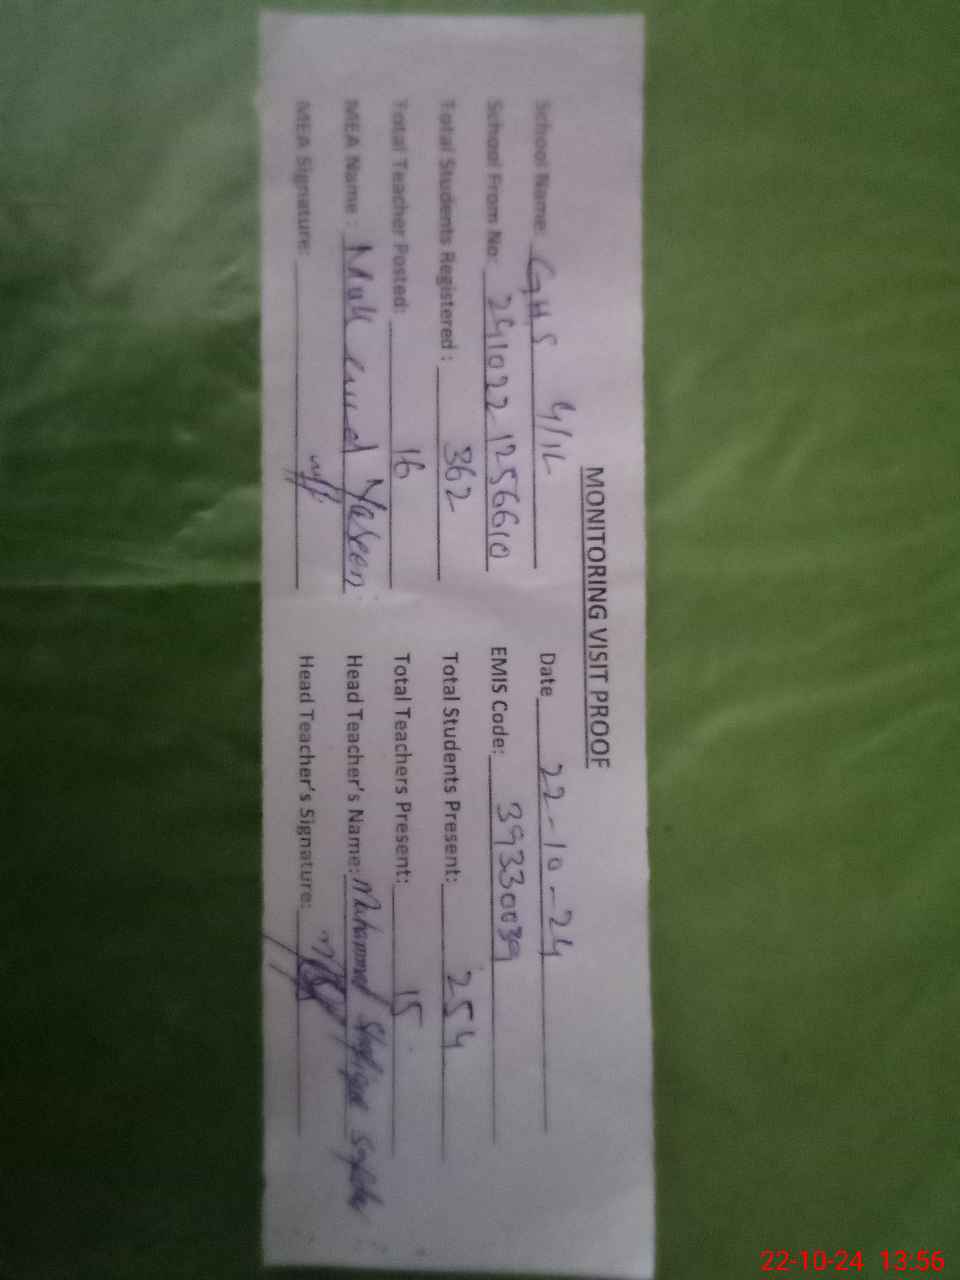 MONITORING VISIT PROOF
School Name: GHS 4/1L Date 22-10-24
School From No: 241022-1256610 EMIS Code: 39330039
Total Students Registered : 362 Total Students Present: 254
Total Teacher Posted: 16 Total Teachers Present: 15
MEA Name : Yaseen Head Teacher's Name: Muhammad Shafique
MEA Signature: Head Teacher's Signature:
22-10-24 13:56